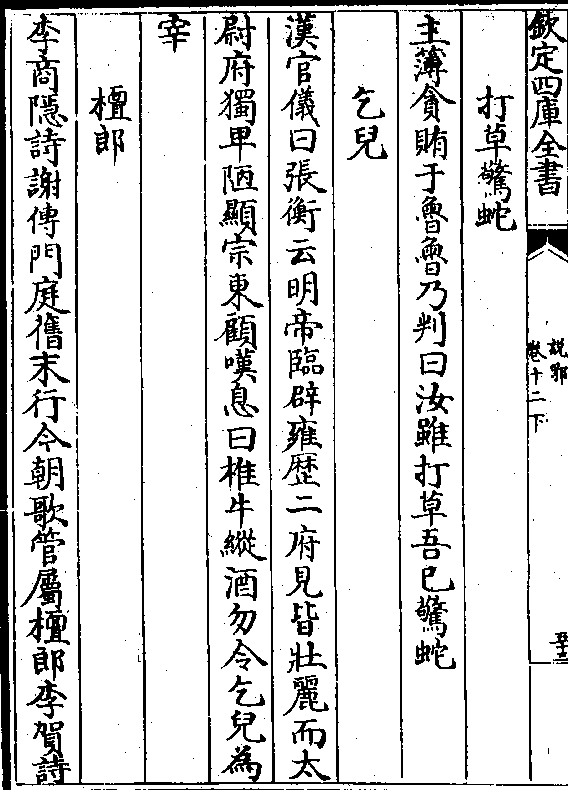 欽定四庫全書
說郛
卷十二下
打草驚蛇
主簿貪賄于魯魯乃判曰汝雖打草吾已驚蛇
乞兒
漢官儀曰張衡云明帝臨辟雍歷二府見皆壯麗而太
尉府獨卑陋顯宗東顧嘆息曰椎牛縱酒勿令乞兒為
宰
檀郎
李商隱詩謝傅門庭舊末行今朝歌管屬檀郎李賀詩